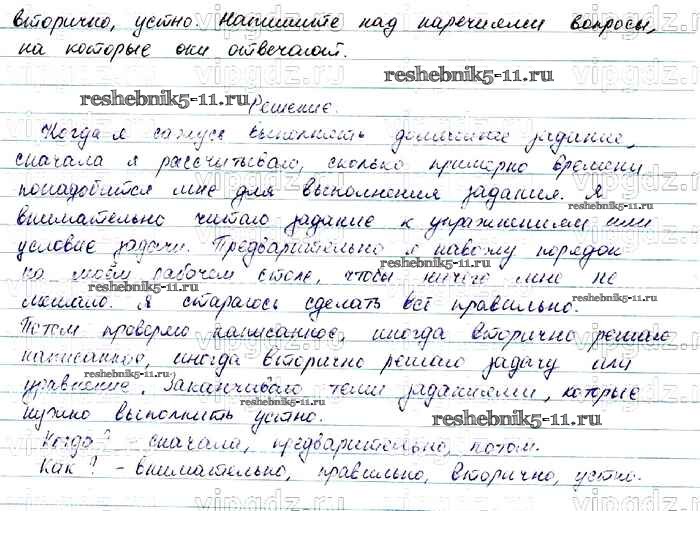 вторично, устно. Напишите над наречиями вопросы,
на которые они отвечают.
reshebnik5-11.ru
reshebnik5-11.ru Решение.
Когда я сажусь выполнять домашнее задание,
сначала я рассчитываю, сколько примерно времени
понадобится мне для выполнения задания. Я
reshebnik5-11.ru
внимательно читаю задание к упражнениям или
условие задачи. Предварительно я навожу порядок
reshebnik5-11.ru
на моём рабочем столе, чтобы ничего мне не
reshebnik5-11.ru
мешало. Я стараюсь сделать всё правильно.
reshebnik5-11.ru
Потом проверяю написанное, иногда вторично решаю
написанное, иногда вторично решаю задачу или
reshebnik5-11.ru
уравнение. Заканчиваю теми заданиями, которые
нужно выполнить устно.
reshebnik5-11.ru
Когда? - сначала, предварительно, потом.
Как? - внимательно, правильно, вторично, устно.
reshebnik5-11.ru
vipgdz.ru vipgdz.ru vipgdz.ru